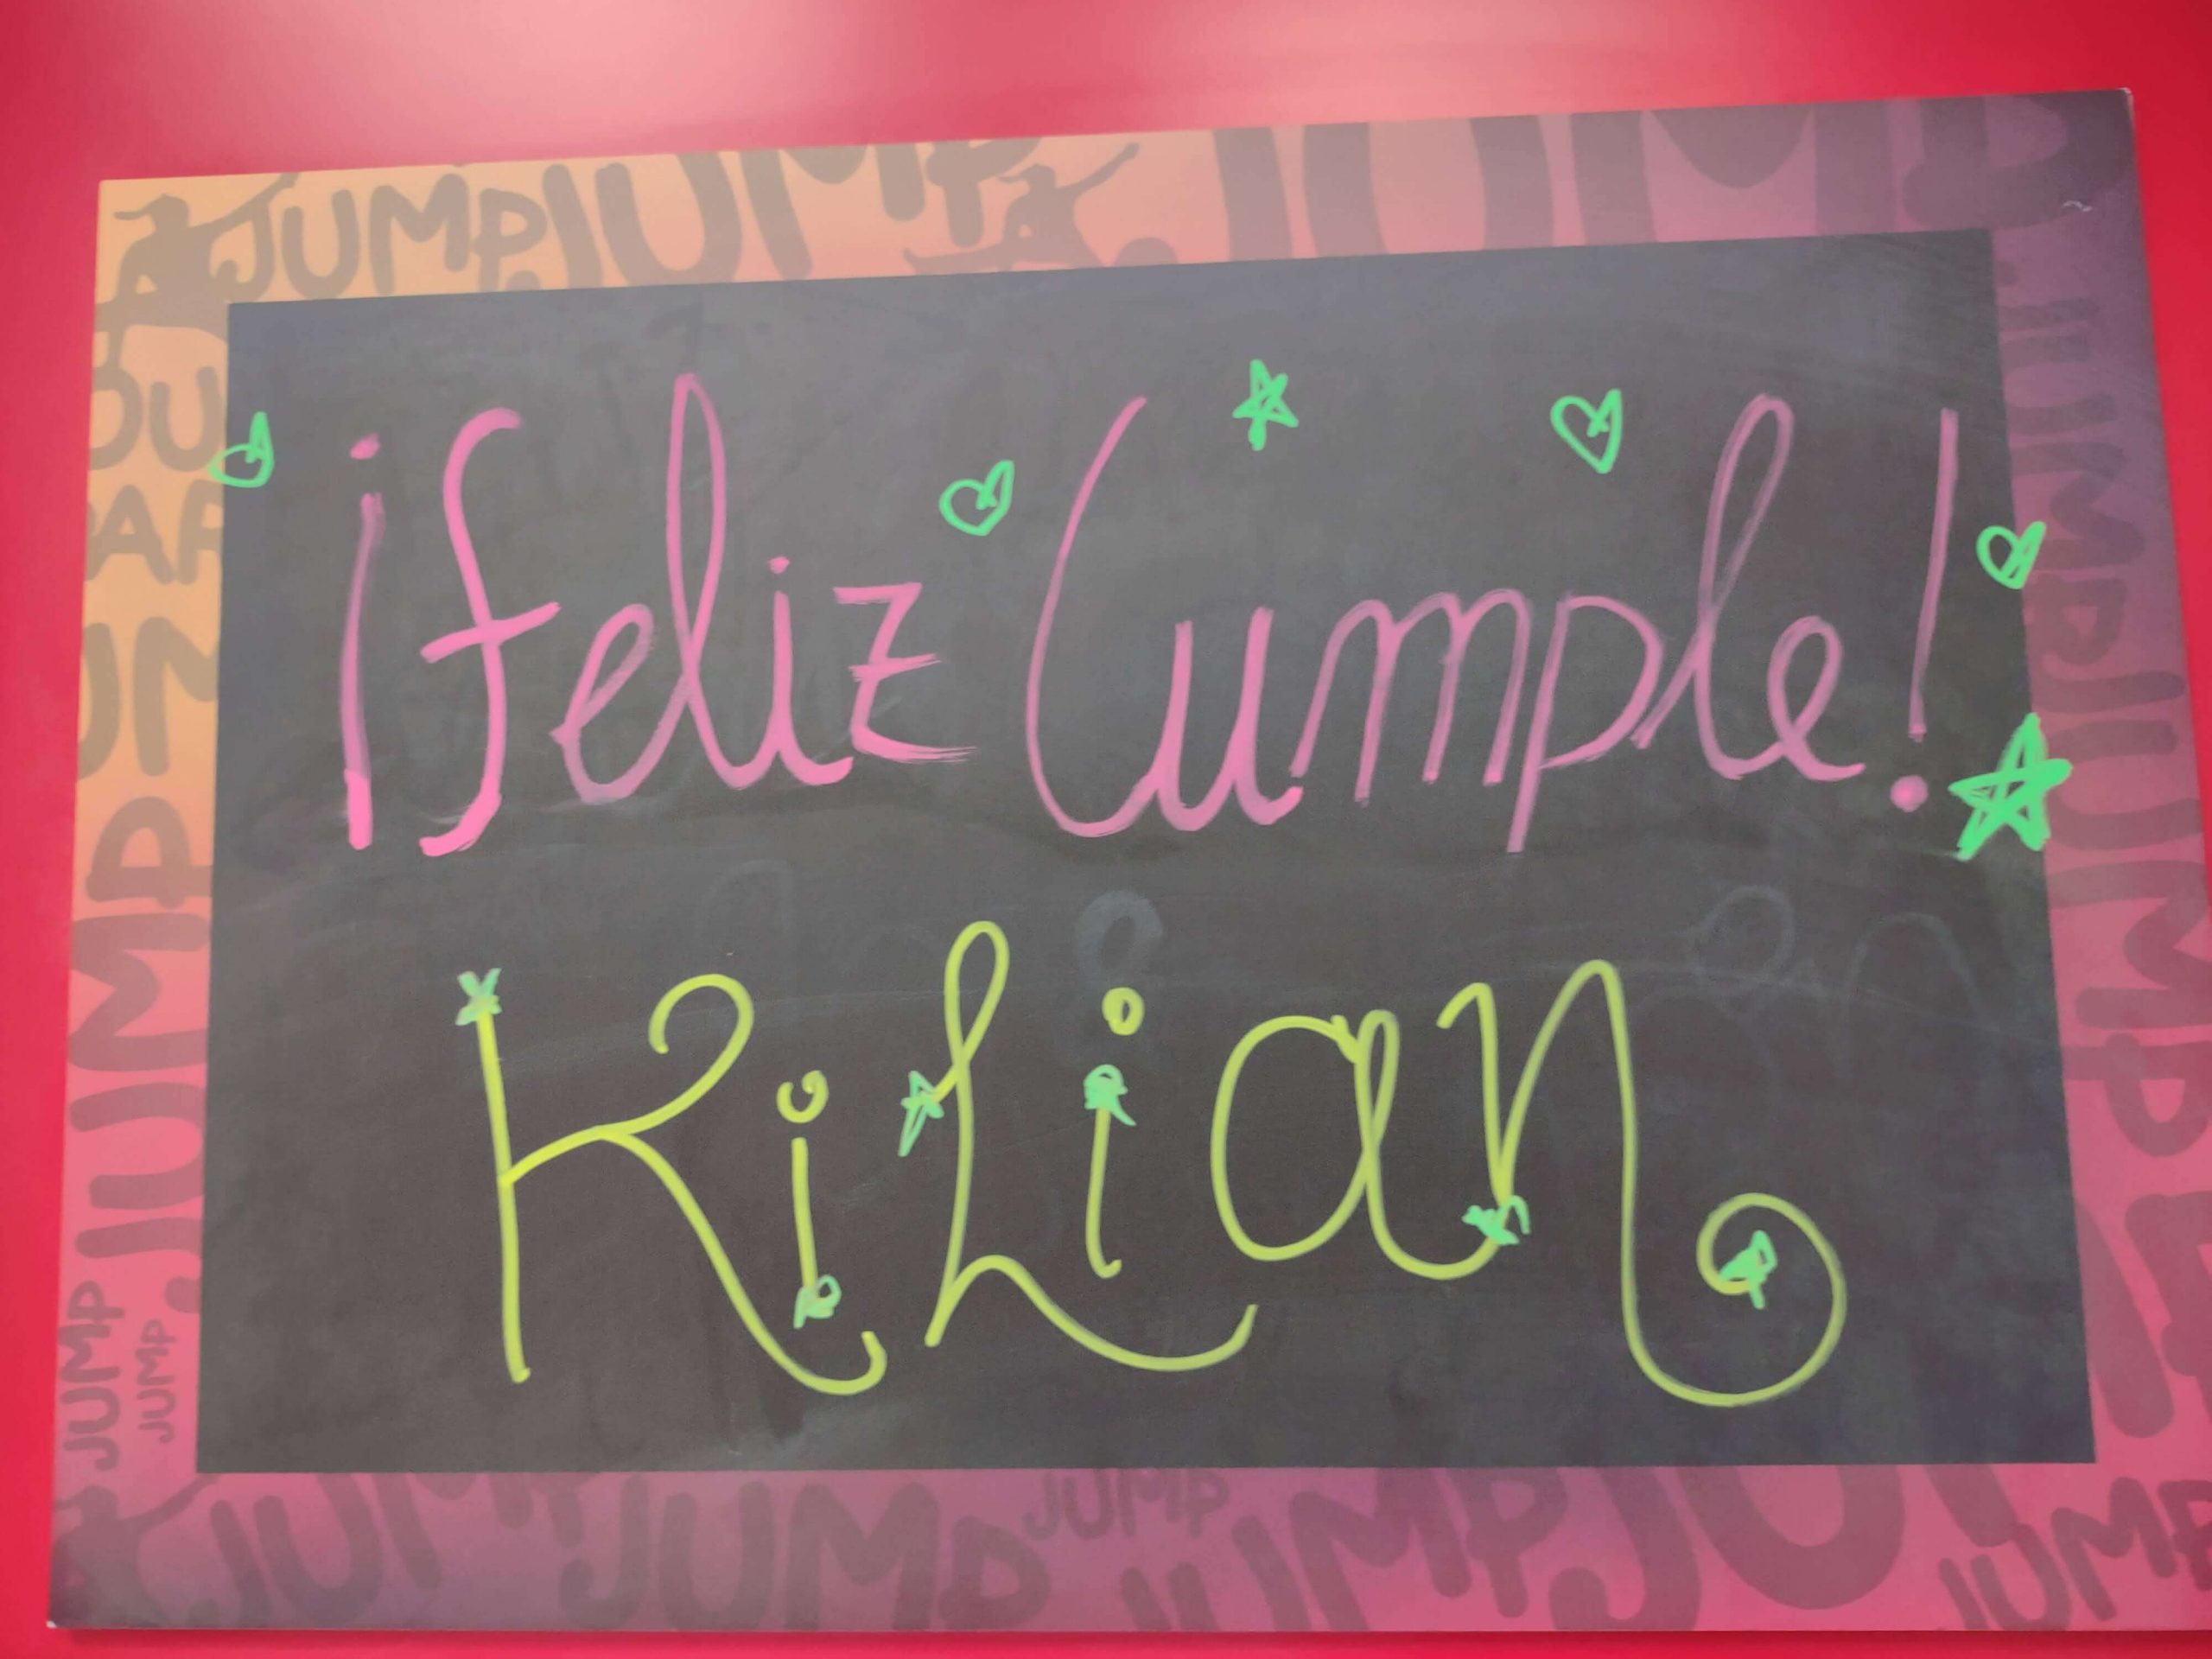 ¡feliz Cumple!
KiLian
JUMP JUMP JUMP
JUMP
JUMP
JUMP
JUMP
JUMP
JUMP
JUMP JUMP JUMP JUMP
JUMP